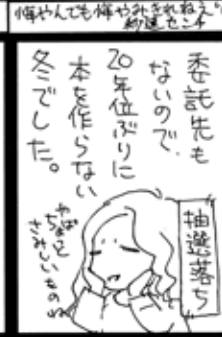 悔やんでも悔やみきれねえ
秒速センチ
委託先も
ないので、
20年位ぶりに
本を作らない
冬でした。
抽選落ち
やっぱ
ちょっと
さみしいものね